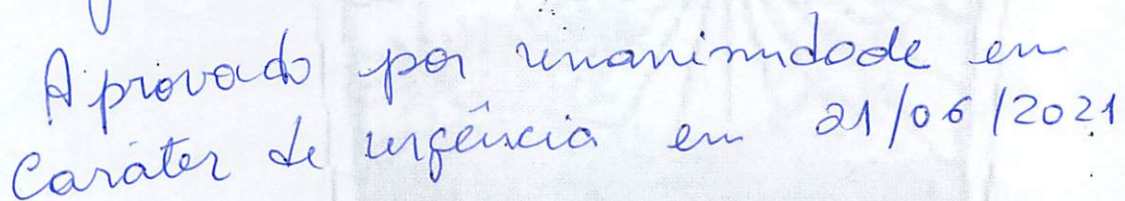 Aprovado por unanimidade em
Caráter de urgência em 21/06/2021